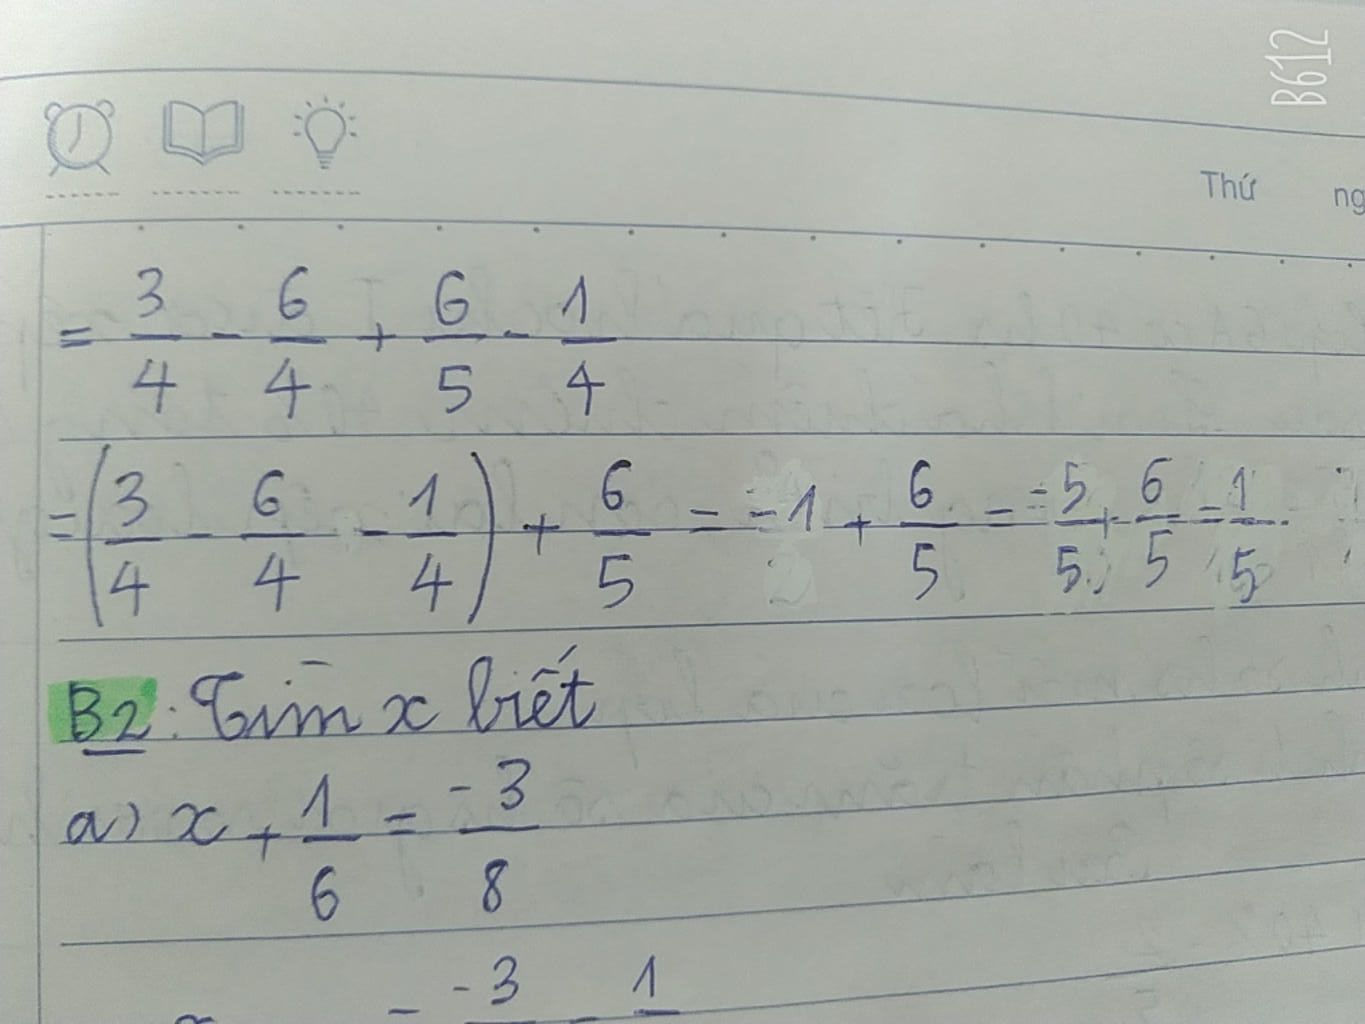 B612
Thứ ng
= 3/4 - 6/4 + 6/5 - 1/4
= (3/4 - 6/4 - 1/4) + 6/5 = -1 + 6/5 = -5/5 + 6/5 = 1/5.
B2: Tìm x biết
a) x + 1/6 = -3/8
= -3 - 1